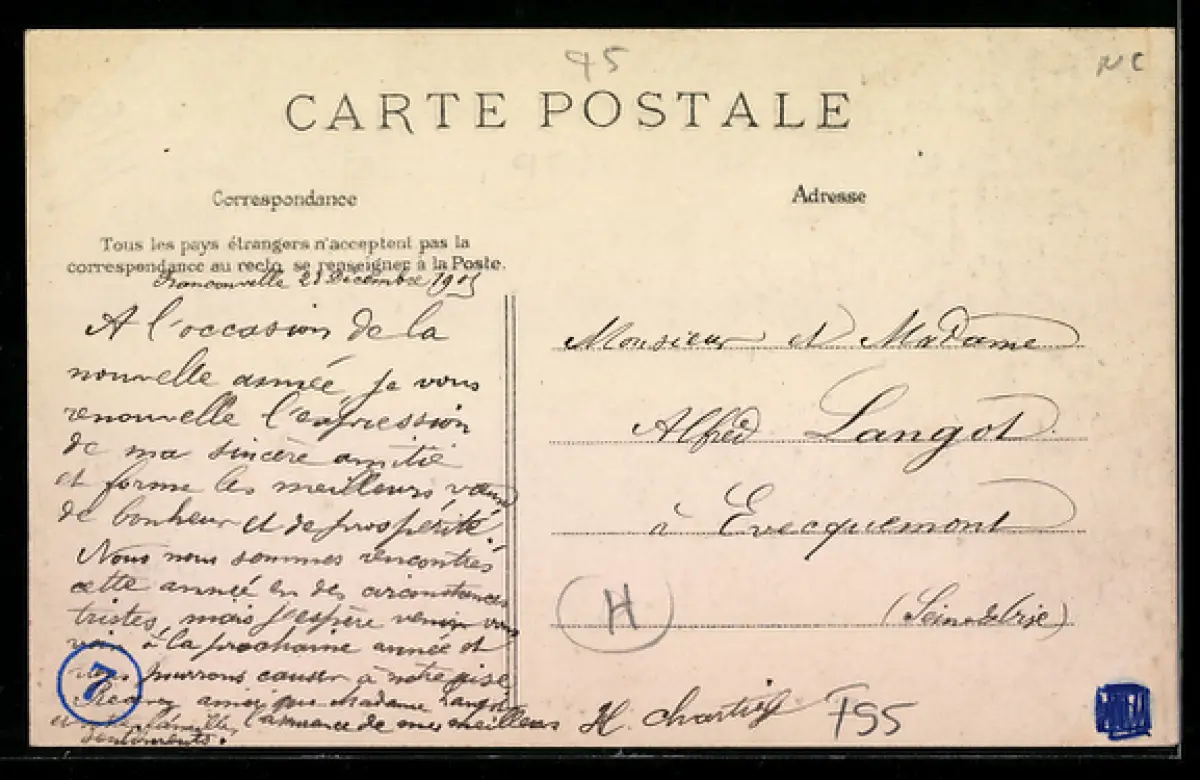 95
NC
CARTE POSTALE
Correspondance
Adresse
Tous les pays étrangers n'acceptent pas la
correspondance au recto, se renseigner à la Poste.
Franconville 28 Décembre 190
A l'occasion de la
nouvelle année, je vous
renouvelle l'expression
de ma sincère amitié
et forme les meilleurs vœux
de bonheur et de prospérité.
Nous nous sommes rencontrés
cette année en des circonstances
tristes, mais j'espère venir vous
voir à la prochaine année et
nous pourrons causer à notre aise.
Recevez ainsi que Madame Langot
et votre famille, l'assurance de mes meilleurs
sentiments.
H. Chartier
Monsieur et Madame
Alfred Langot
à Evecquemont
(Seine & Oise)
H
7
F95